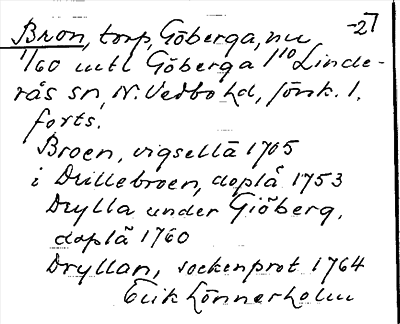 Bron, torp, Göberga, nu -27
1/60 mtl Göberga 1 10 Linde-
rås sn, N. Vedbo hd, Jönk. l.
forts.
Broen, vigsellä 1705
i Drillebroen, doplä 1753
Drylla under Giöberg,
doplä 1760
Dryllan, sockenprot 1764
Erik Lönnerholm